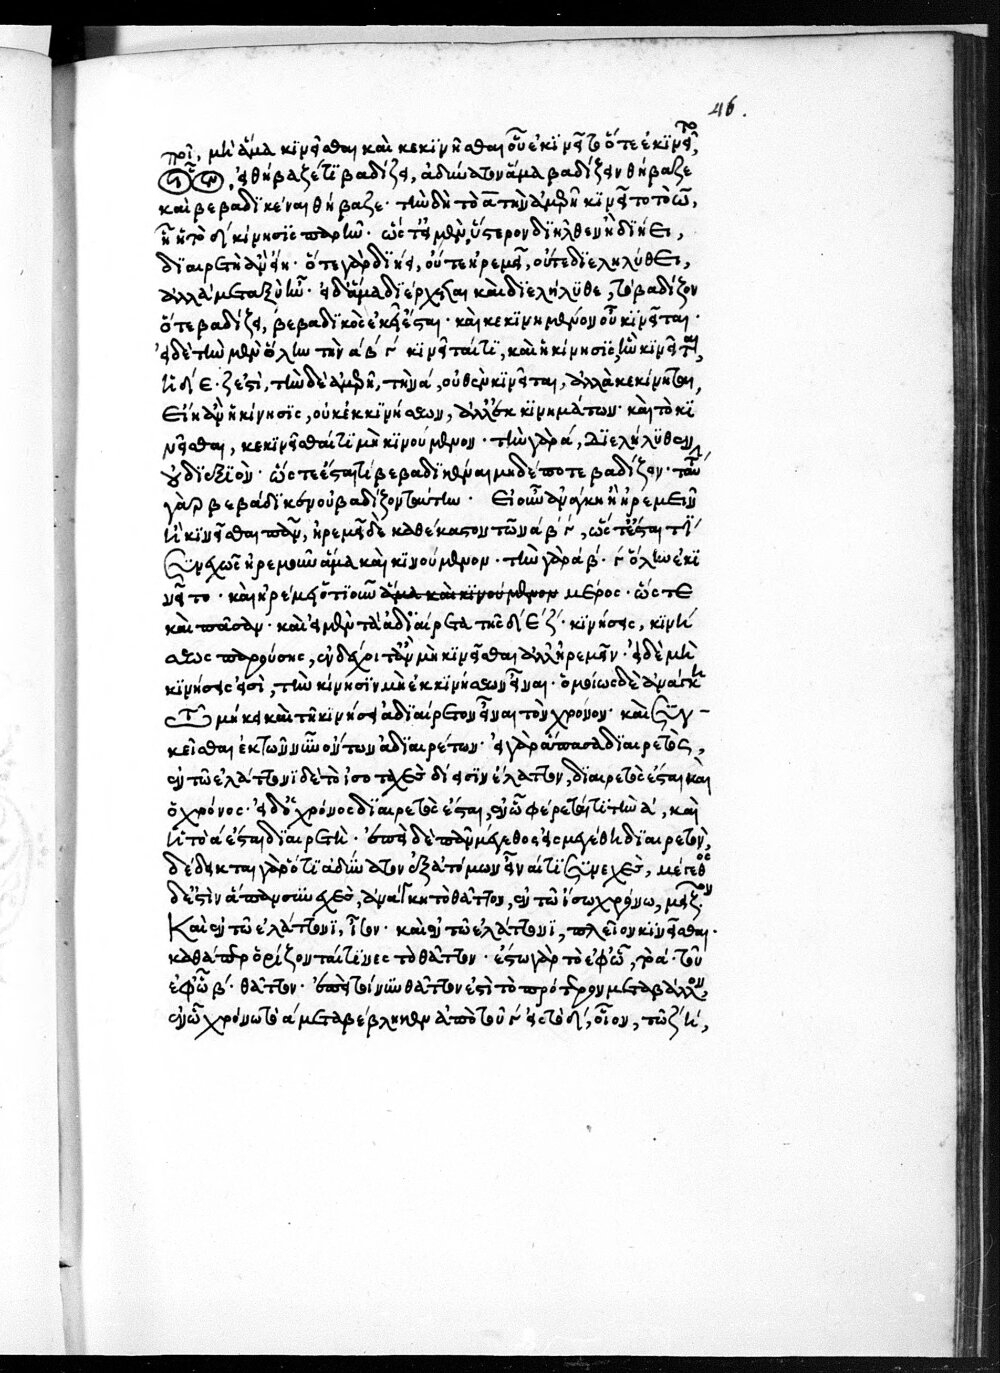 46.
ποῖ, μὴ ἅμα κινεῖσθαι καὶ κεκινῆσθαι οὗ ἐκινεῖτο ὅτε ἐκινεῖτο,
εἰ θήβαζέ τι βαδίζει, ἀδύνατον ἅμα βαδίζειν θήβαζε
καὶ βεβαδικέναι θήβαζε· τὴν δὴ τὸ α τὴν ἀμερῆ κινεῖτο τὸ ω,
ᾗ ἡ τὸ δ κίνησις παρῆν· ὥστ' εἰ μὲν ὕστερον διῆλθεν ἢ διῄει,
διαιρετὴ ἂν εἴη· ὅτε γὰρ διῄει, οὔτε ἠρέμει, οὔτε διεληλύθει,
ἀλλὰ μεταξὺ ἦν· εἰ δ' ἅμα διέρχεται καὶ διελήλυθε, τὸ βαδίζον
ὅτε βαδίζει, βεβαδικὸς ἐκεῖ ἔσται· καὶ κεκινημένον οὗ κινεῖται·
εἰ δὲ τὴν μὲν ὅλην τὴν α β γ κινεῖταί τι, καὶ ἡ κίνησις ἣν κινεῖται,
ἡ δ ε ζ ἐστὶ, τὴν δὲ ἀμερῆ, τὴν α, οὐθὲν κινεῖται, ἀλλὰ κεκίνηται,
εἴη ἂν ἡ κίνησις, οὐκ ἐκ κινήσεων, ἀλλ' ἐκ κινημάτων· καὶ τὸ κι
νεῖσθαι, κεκινῆσθαί τι μὴ κινούμενον· τὴν γὰρ α, διελήλυθεν
οὐ διεξιὸν· ὥστε ἔσται τι βεβαδικέναι μηδέποτε βαδίζον· ταύτην
γὰρ βεβάδικεν οὐ βαδίζον ταύτην· Εἰ οὖν ἀνάγκη ἢ ἠρεμεῖν
ἢ κινεῖσθαι πᾶν, ἠρεμεῖ δὲ καθ' ἕκαστον τῶν α β γ, ὥστ' ἔσται τι
συνεχῶς ἠρεμοῦν ἅμα καὶ κινούμενον· τὴν γὰρ α β γ ὅλην ἐκι
νεῖτο· καὶ ἠρέμει ὁτιοῦν ἅμα καὶ κινούμενον μέρος· ὥστε
καὶ πᾶσαν· καὶ εἰ μὲν τὰ ἀδιαίρετα τῆς δ ε ζ· κινήσεις, κινή
σεως παρούσης, ἐνδέχοιτ' ἂν μὴ κινεῖσθαι ἀλλ' ἠρεμεῖν· εἰ δὲ μὴ
κινήσεις εἰσὶ, τὴν κίνησιν μὴ ἐκ κινήσεων εἶναι· ὁμοίως δὲ ἀνάγκη
τῷ μήκει καὶ τῇ κινήσει ἀδιαίρετον εἶναι τὸν χρόνον· καὶ συγ-
κεῖσθαι ἐκ τῶν νῦν ὄντων ἀδιαιρέτων· εἰ γὰρ ἅπασα διαιρετὸς,
ἐν τῷ ἐλάττονι δὲ τὸ ἰσοταχὲς δίεισιν ἔλαττον, διαιρετὸς ἔσται καὶ
ὁ χρόνος· εἰ δ' ὁ χρόνος διαιρετὸς ἔσται, ἐν ᾧ φέρεταί τι τὴν α, καὶ
ἡ τὸ α ἔσται διαιρετή· ἐπεὶ δὲ πᾶν μέγεθος εἰς μεγέθη διαιρετὸν,
δέδεικται γὰρ ὅτι ἀδύνατον ἐξ ἀτόμων εἶναί τι συνεχὲς, μέγεθος
δ' ἐστὶν ἅπαν συνεχὲς, ἀνάγκη τὸ θᾶττον, ἐν τῷ ἴσῳ χρόνῳ, μεῖζον
Καὶ ἐν τῷ ἐλάττονι, ἴσον· καὶ ἐν τῷ ἐλάττονι, πλεῖον κινεῖσθαι·
καθάπερ ὁρίζονταί τινες τὸ θᾶττον· ἔστω γὰρ τὸ ἐφ' ᾧ, τὸ α· τοῦ
ἐφ' ᾧ β· θᾶττον· ἐπεὶ τοίνυν θᾶττον ἐστὶ τὸ πρότερον μεταβάλλον,
ἐν ᾧ χρόνῳ τὸ α μεταβέβληκεν ἀπὸ τοῦ γ εἰς τὸ δ, οἷον, τῷ ζ η,